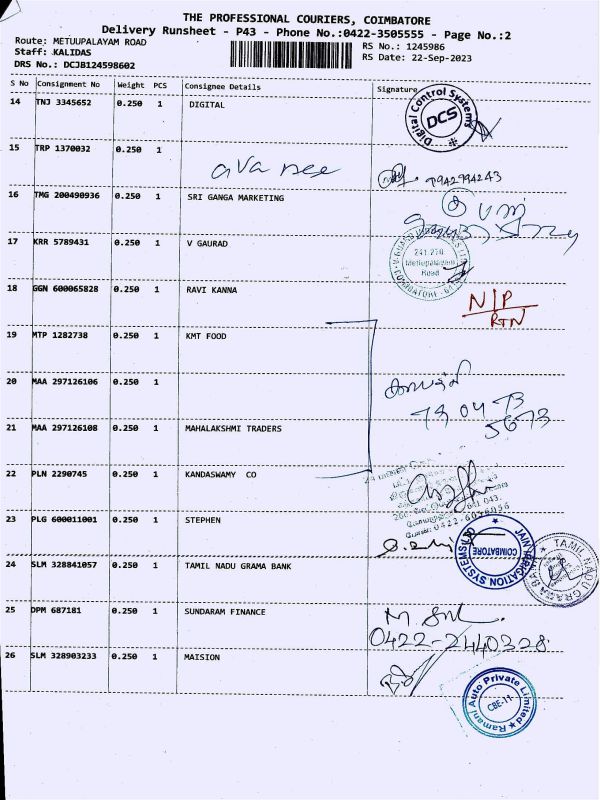 THE PROFESSIONAL COURIERS, COIMBATORE
Delivery Runsheet - P43 - Phone No.:0422-3505555 - Page No.:2
Route: METUUPALAYAM ROAD
Staff: KALIDAS
DRS No.: DCJB124598602
RS No.: 1245986
RS Date: 22-Sep-2023
S No Consignment No Weight PCS Consignee Details Signature
14 TNJ 3345652 0.250 1 DIGITAL
Digital Control Systems
DCS
15 TRP 1370032 0.250 1
7942994243
16 TMG 200490936 0.250 1 SRI GANGA MARKETING
17 KRR 5789431 0.250 1 V GAURAD
Mettupalayam
Road
COIMBATORE
18 GGN 600065828 0.250 1 RAVI KANNA
N/P
RTN
19 MTP 1282738 0.250 1 KMT FOOD
20 MAA 297126106 0.250 1
73 04 73
5673
21 MAA 297126108 0.250 1 MAHALAKSHMI TRADERS
22 PLN 2290745 0.250 1 KANDASWAMY CO
23 PLG 600011001 0.250 1 STEPHEN
JAIN IRRIGATION SYSTEMS LTD
COIMBATORE
24 SLM 328841057 0.250 1 TAMIL NADU GRAMA BANK
TAMIL NADU GRAMA BANK
25 DPM 687181 0.250 1 SUNDARAM FINANCE
0422-2440328
26 SLM 328903233 0.250 1 MAISION
Ramani Auto Private Limited
CBE-11